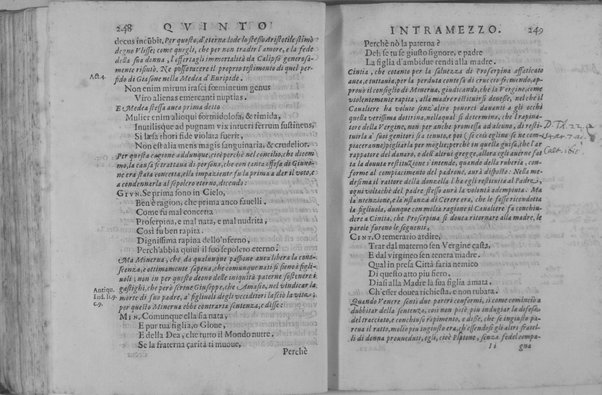 248 QVINTO
decus incubit. Per questo, d'eterna lode lo stesso Aristotile stimò
degno Vlisse; come quegli, che per non tradire l'amore, e la fede
della sua donna, l'offertagli immortalità da Calipso generosa-
mente rifiutò. Ne possono ... il proprio testimonio di quel per-
fido di Giasone nella Medea d'Euripide.
Act. 4.
Non enim mirum irasci fœmineum genus
Viro alienas emercanti nuptias.
E Medea stessa anco prima detto
Mulier enim alioqui formidolosa, & timida,
Inutilisque ad pugnam vix intueri ferrum sustinens,
Si læsa thori fide violata fuerit,
Non est alia mens magis sanguinaria, & crudelior.
Per questa cagione adunque, cioè perche nel concilio, che dissi-
mo, la causa si trattava di persona, che con tanta offesa di Giuno-
ne era stata concetta, ella impaziente fu la prima a dir il voto, e
a condennarla al sepolcro eterno, dicendo:
GIVN. Se prima sono in Cielo,
Ben è ragion, che prima anco favelli.
Come fu mal concetta
Proserpina, e mal nata, e mal nudrita,
Così fu ben rapita.
Dignissima rapina dello'nferno,
Perch'abbia quivi il suo sepolcro eterno.
Ma Minerva, che da qualunque passione avea libera la cono-
scenza, e ottimamente sapeva, che comunque nati si sieno i figliu-
oli, non in per questo deono delle iniquità paterne sostenere i
gastighi, che però scrive Giuseppe, che Amasio, nel vindicar la
morte di suo padre, a' figliuoli degli ucciditori lasciò la vita;
per questo Minerva ebbe contraria sentenza, e disse:
Antiqu. Iud. li. 9. c. 9.
MIN. Comunque ella sia nata,
E pur tua figlia, o Gioue,
E della Dea, che tutto il Mondo nutre.
Se la fraterna carità ti muoue,
Perchè
INTRAMEZZO. 249
Perchè nò la paterna?
Deh se tu se' giusto signore, e padre
La figlia d'ambidue rendi alla madre.
Cinzia, che cotanto per la salvezza di Proserpina affaticato
avea, e cotanto, per la perduta contesa di cruccio sfremendo, ap-
provò il consiglio di Minerva, giudicando, che la Vergine, come
volentemente rapita, alla madre restituir si dovesse, nel che il
Cavaliere ha voluto sens' altro porerci davanti a gli occhi
questa verissima dottrina, nella qual si determina, che il rapina-
tore della Vergine, non per anche promessa ad alcuno, di restitu-
irla a' suoi sia tenuto, e potendosene, e poi se così egli o se ne com-
piaceranno) pigliarla per moglie, perche in quella guisa, che l'ar
rappatore del danaro, e dell' altrui gregge, allora egli averne fat-
ta la dovuta restituzione s'intende, quando della ruberia, con-
forme al compiacimento del padrone, aurà disposto. Nella me-
desima il rattore della donzella l'ha egli restituita al Padre, o-
gni volta che del padre stesso aurà la volontà adempiuta. Ma
la 'ntenzione, e la 'nstanza di Cerere era, che le fusse ricondotta
la figliuola, dunque con molta ragione il Caualiere fa conchiu-
dere a Cinzia, che Proserpina si doueua ritornare alla madre, le
parole furono le seguenti.
CINT. O temerario ardire,
Trar dal materno sen Vergine casta,
E dal virgineo sen tenera madre.
Qual in presa Città faria nemico
Di questo atto piu fiero.
Diasi alla Madre la sua figlia amata,
Ch'esser douea richiesta, e non rubata.
Quando Venere senti due pareri conformi, sì come cominciò a
dubbitar della sentenza, così non piè più indugiar la difesa,
del tracciato, e conchiuso rapimento, e disse, che se ingiusto pa-
reua il ratto, molto piu ingiusto era, che essendo gli altri fratel-
li di donna proueduti, egli, cioè Plutone, senza fede del compa-
Ii gna